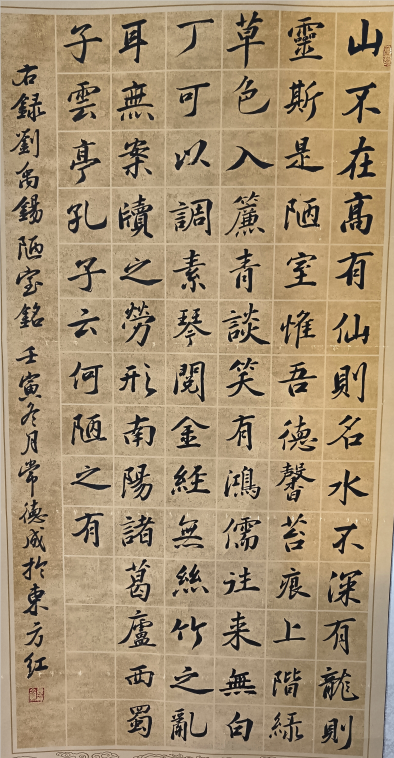 山不在高有仙則名水不深有龍則
靈斯是陋室惟吾德馨苔痕上階緑
草色入簾青談笑有鴻儒往来無白
丁可以調素琴閱金經無絲竹之亂
耳無案牘之勞形南陽諸葛廬西蜀
子雲亭孔子云何陋之有
右録劉禹錫陋室銘壬寅冬月常德成於東方红